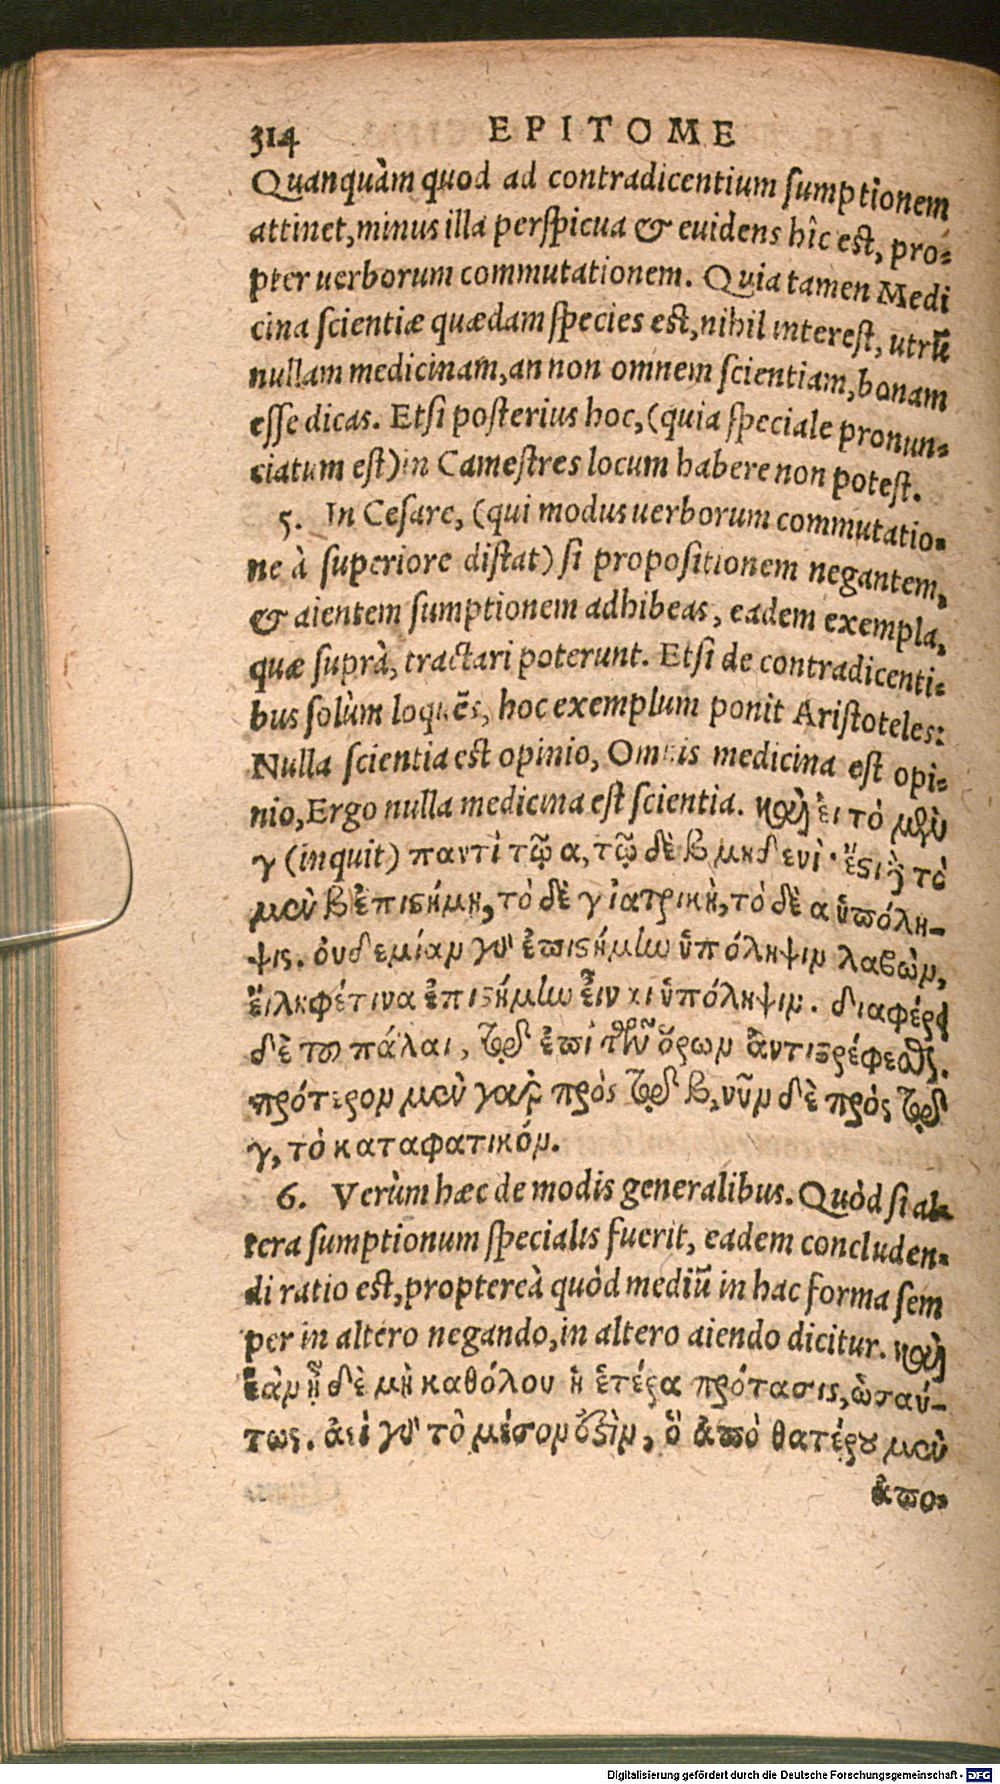 314 EPITOME
Quanquàm quod ad contradicentium sumptionem
attinet, minus illa perspicua & euidens hîc est, pro-
pter uerborum commutationem. Quia tamen Medi
cina scientiæ quædam species est, nihil interest, utrũ
nullam medicinam, an non omnem scientiam, bonam
esse dicas. Etsi posterius hoc, (quia speciale pronun-
ciatum est) in Camestres locum habere non potest.
5. In Cesare, (qui modus uerborum commutatio-
ne à superiore distat) si propositionem negantem,
& aientem sumptionem adhibeas, eadem exempla,
quæ suprà, tractari poterunt. Etsi de contradicenti-
bus solùm loquẽs, hoc exemplum ponit Aristoteles:
Nulla scientia est opinio, Omnis medicina est opi-
nio, Ergo nulla medicina est scientia. καὶ εἰ τὸ μὲν
γ (inquit) παντὶ τῷ α, τῷ δὲ β μηδενὶ· ἔστι γὰρ τὸ
μὲν β ἐπιστήμη, τὸ δὲ γ ἰατρικὴ, τὸ δὲ α ὑπόλη-
ψις. οὐδεμίαν γὰρ ἐπιστήμην ὑπόληψιν λαβὼν,
εἴληφέ τινα ἐπιστήμην εἶναι ὑπόληψιν. διαφέρει
δὲ τοῦ πάλαι, τῷ ἐπὶ τῶν ὅρων ἀντιστρέφεσθαι.
πρότερον μὲν γὰρ πρὸς τῷ β, νῦν δὲ πρὸς τῷ
γ, τὸ καταφατικόν.
6. Verùm hæc de modis generalibus. Quòd si al-
tera sumptionum specialis fuerit, eadem concluden-
di ratio est, proptereà quòd mediũ in hac forma sem
per in altero negando, in altero aiendo dicitur. καὶ
ἐὰν ᾖ δὲ μὴ καθόλου ἡ ἑτέρα πρότασις, ὡσαύ-
τως. ἀεὶ γὰρ τὸ μέσον ἐστὶν, ὃ ἀπὸ θατέρου μὲν
ἀπο-
Digitalisierung gefördert durch die Deutsche Forschungsgemeinschaft - DFG